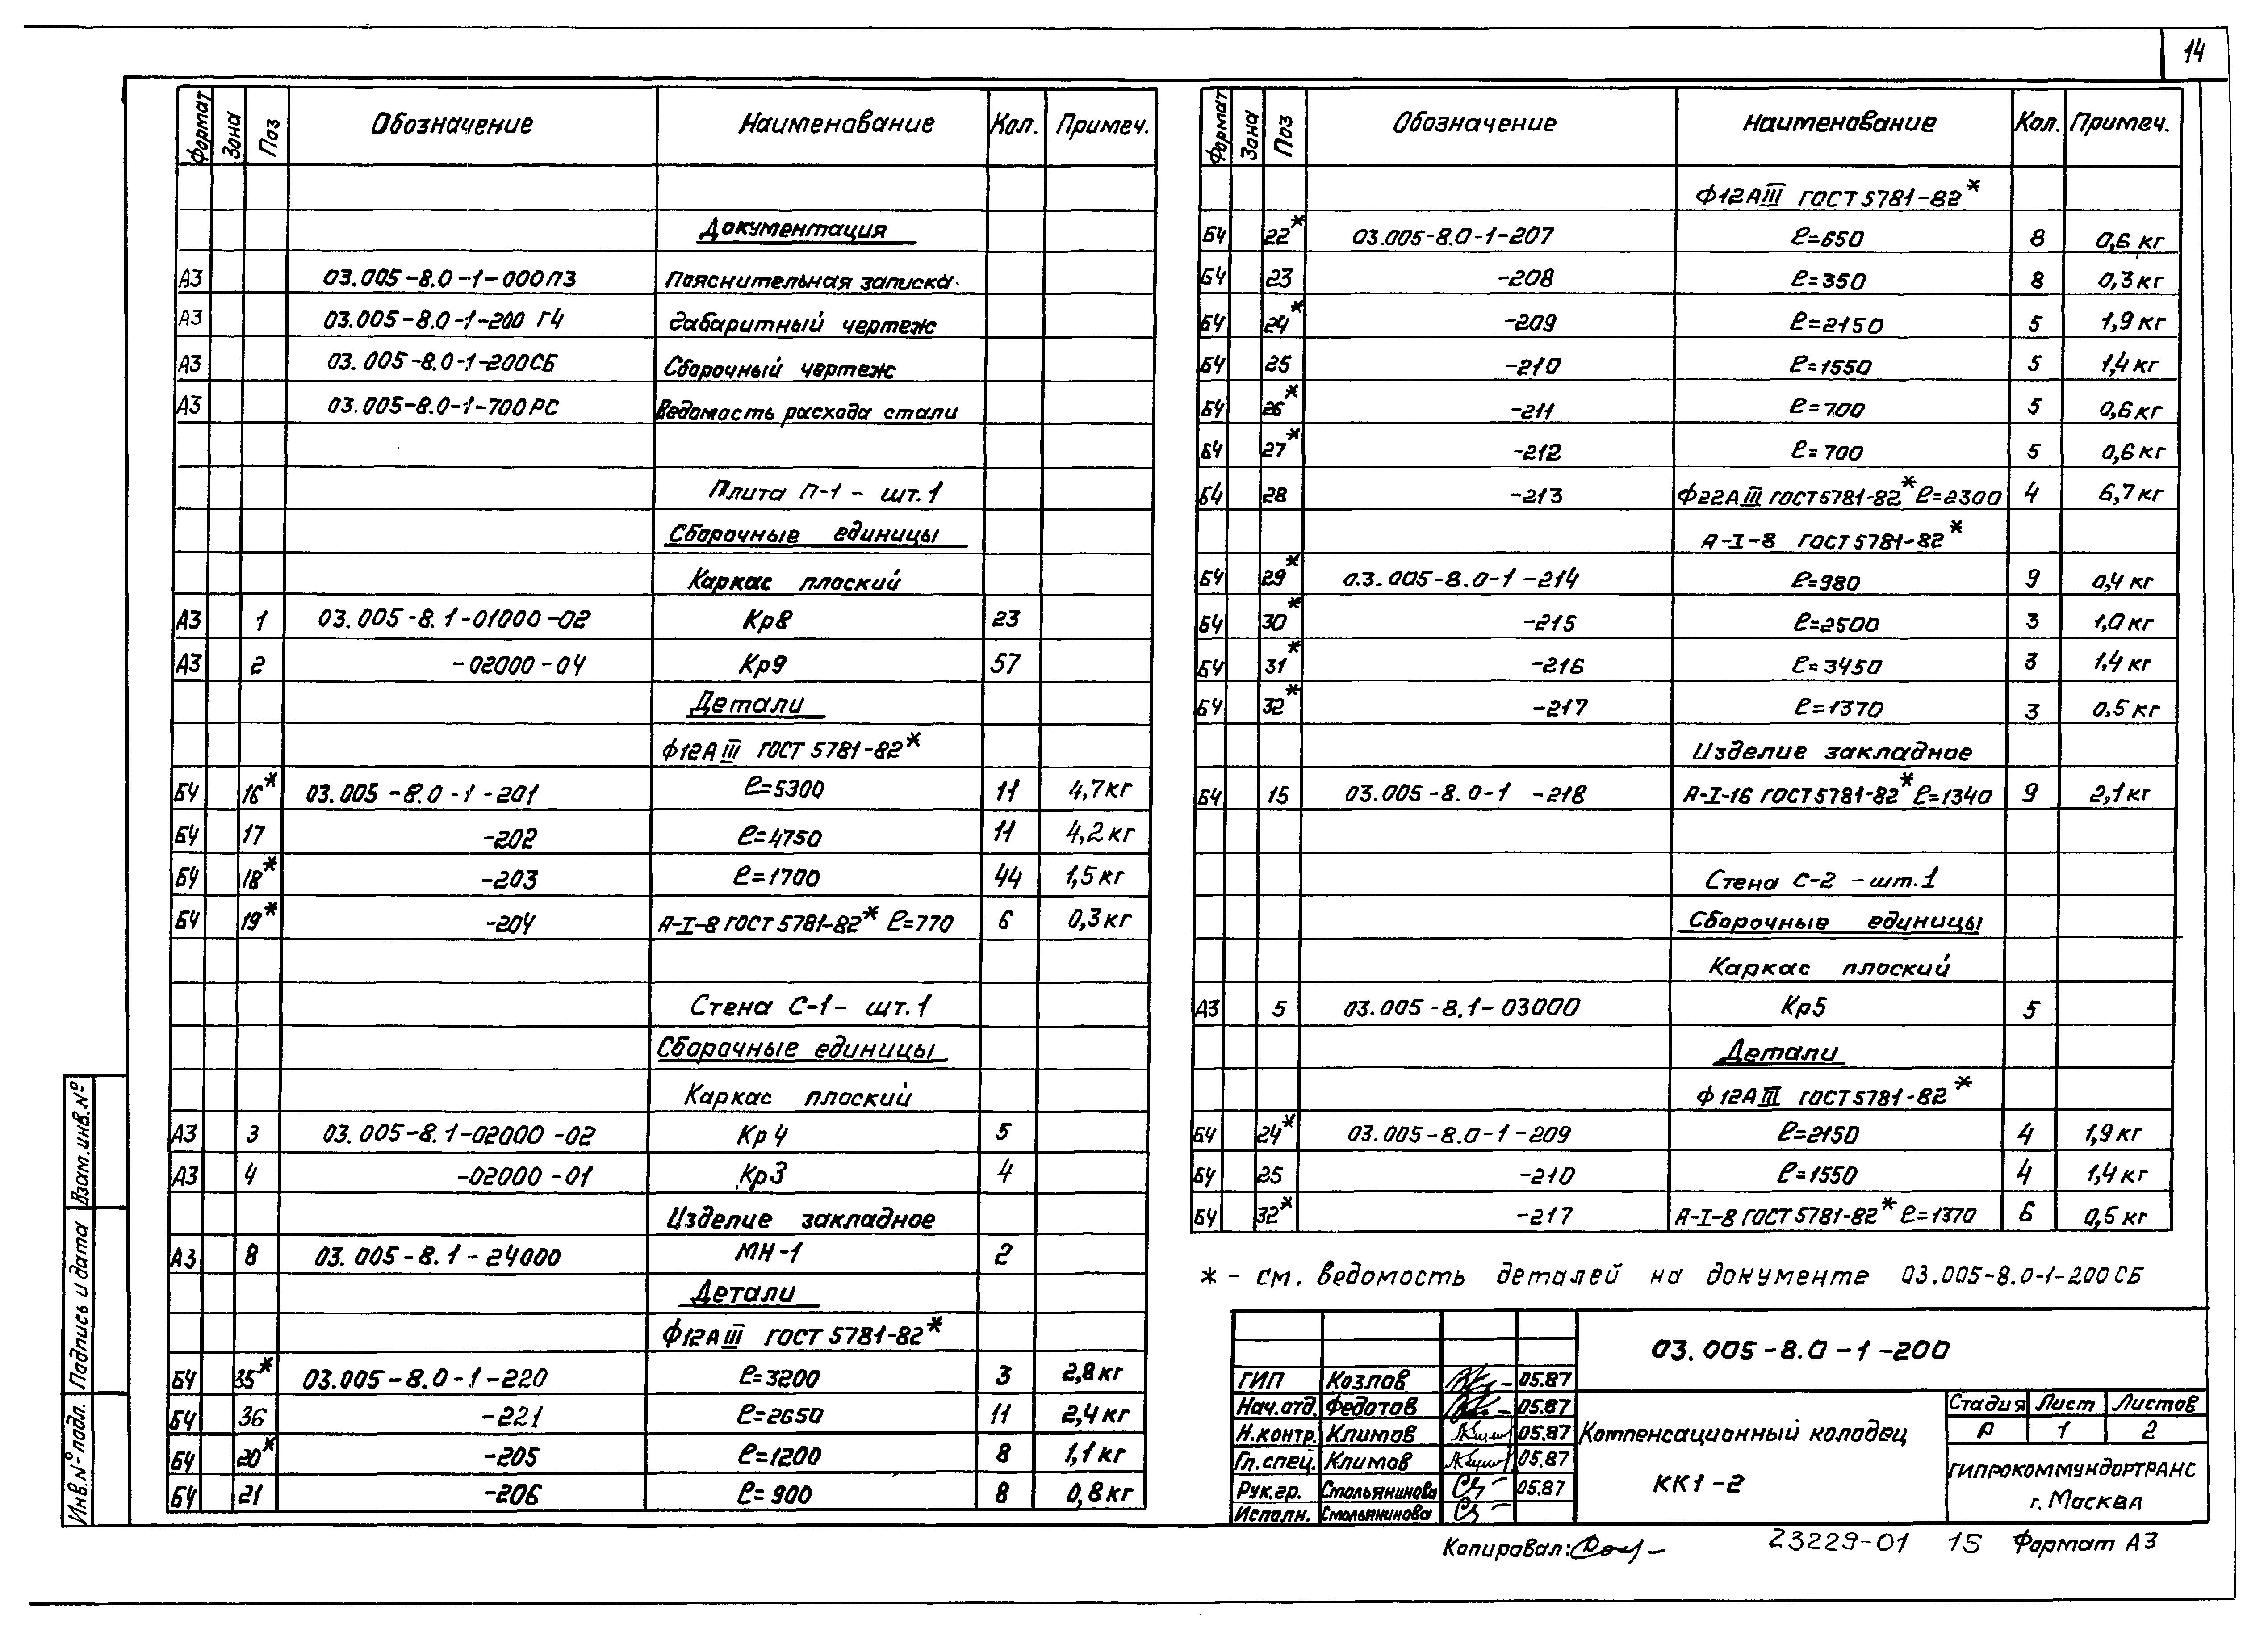 14
Формат Зона Поз Обозначение Наименование Кол. Примеч.
Документация
А3 03.005-8.0-1-000ПЗ Пояснительная записка
А3 03.005-8.0-1-200 ГЧ Габаритный чертеж
А3 03.005-8.0-1-200СБ Сборочный чертеж
А3 03.005-8.0-1-700РС Ведомость расхода стали
Плита П-1 - шт.1
Сборочные единицы
Каркас плоский
А3 1 03.005-8.1-01000-02 Кр8 23
А3 2 -02000-04 Кр9 57
Детали
Ф12АIII ГОСТ 5781-82*
БЧ 16* 03.005-8.0-1-201 ℓ=5300 11 4,7кг
БЧ 17 -202 ℓ=4750 11 4,2кг
БЧ 18* -203 ℓ=1700 44 1,5кг
БЧ 19* -204 А-I-8 ГОСТ 5781-82* ℓ=770 6 0,3кг
Стена С-1- шт.1
Сборочные единицы
Каркас плоский
А3 3 03.005-8.1-02000-02 Кр4 5
А3 4 -02000-01 Кр3 4
Изделие закладное
А3 8 03.005-8.1-24000 МН-1 2
Детали
Ф12АIII ГОСТ 5781-82*
БЧ 35* 03.005-8.0-1-220 ℓ=3200 3 2,8кг
БЧ 36 -221 ℓ=2650 11 2,4кг
БЧ 20* -205 ℓ=1200 8 1,1кг
БЧ 21 -206 ℓ=900 8 0,8кг
Формат Зона Поз Обозначение Наименование Кол. Примеч.
Ф12АIII ГОСТ 5781-82*
БЧ 22* 03.005-8.0-1-207 ℓ=650 8 0,6кг
БЧ 23 -208 ℓ=350 8 0,3кг
БЧ 24* -209 ℓ=2150 5 1,9кг
БЧ 25 -210 ℓ=1550 5 1,4кг
БЧ 26* -211 ℓ=700 5 0,6кг
БЧ 27* -212 ℓ=700 5 0,6кг
БЧ 28 -213 Ф22АIII ГОСТ 5781-82* ℓ=2300 4 6,7кг
А-I-8 ГОСТ 5781-82*
БЧ 29* 03.005-8.0-1-214 ℓ=980 9 0,4кг
БЧ 30* -215 ℓ=2500 3 1,0кг
БЧ 31* -216 ℓ=3450 3 1,4кг
БЧ 32* -217 ℓ=1370 3 0,5кг
Изделие закладное
БЧ 15 03.005-8.0-1 -218 А-I-16 ГОСТ 5781-82* ℓ=1340 9 2,1кг
Стена С-2 -шт.1
Сборочные единицы
Каркас плоский
А3 5 03.005-8.1-03000 Кр5 5
Детали
Ф12АIII ГОСТ 5781-82*
БЧ 24* 03.005-8.0-1-209 ℓ=2150 4 1,9кг
БЧ 25 -210 ℓ=1550 4 1,4кг
БЧ 32* -217 А-I-8 ГОСТ 5781-82* ℓ=1370 6 0,5кг
* - см. ведомость деталей на документе 03.005-8.0-1-200СБ
03.005-8.0-1-200
ГИП Козлов 05.87
Нач.отд. Федотов 05.87
Н.контр. Климов 05.87
Гл.спец. Климов 05.87
Рук.гр. Смольянинова 05.87
Исполн. Смольянинова
Компенсационный колодец
КК1-2
Стадия Лист Листов
Р 1 2
ГИПРОКОММУНДОРТРАНС
г. Москва
Копировал:
23229-01 15 Формат А3
Взам.инв.№
Подпись и дата
Инв.№ подл.